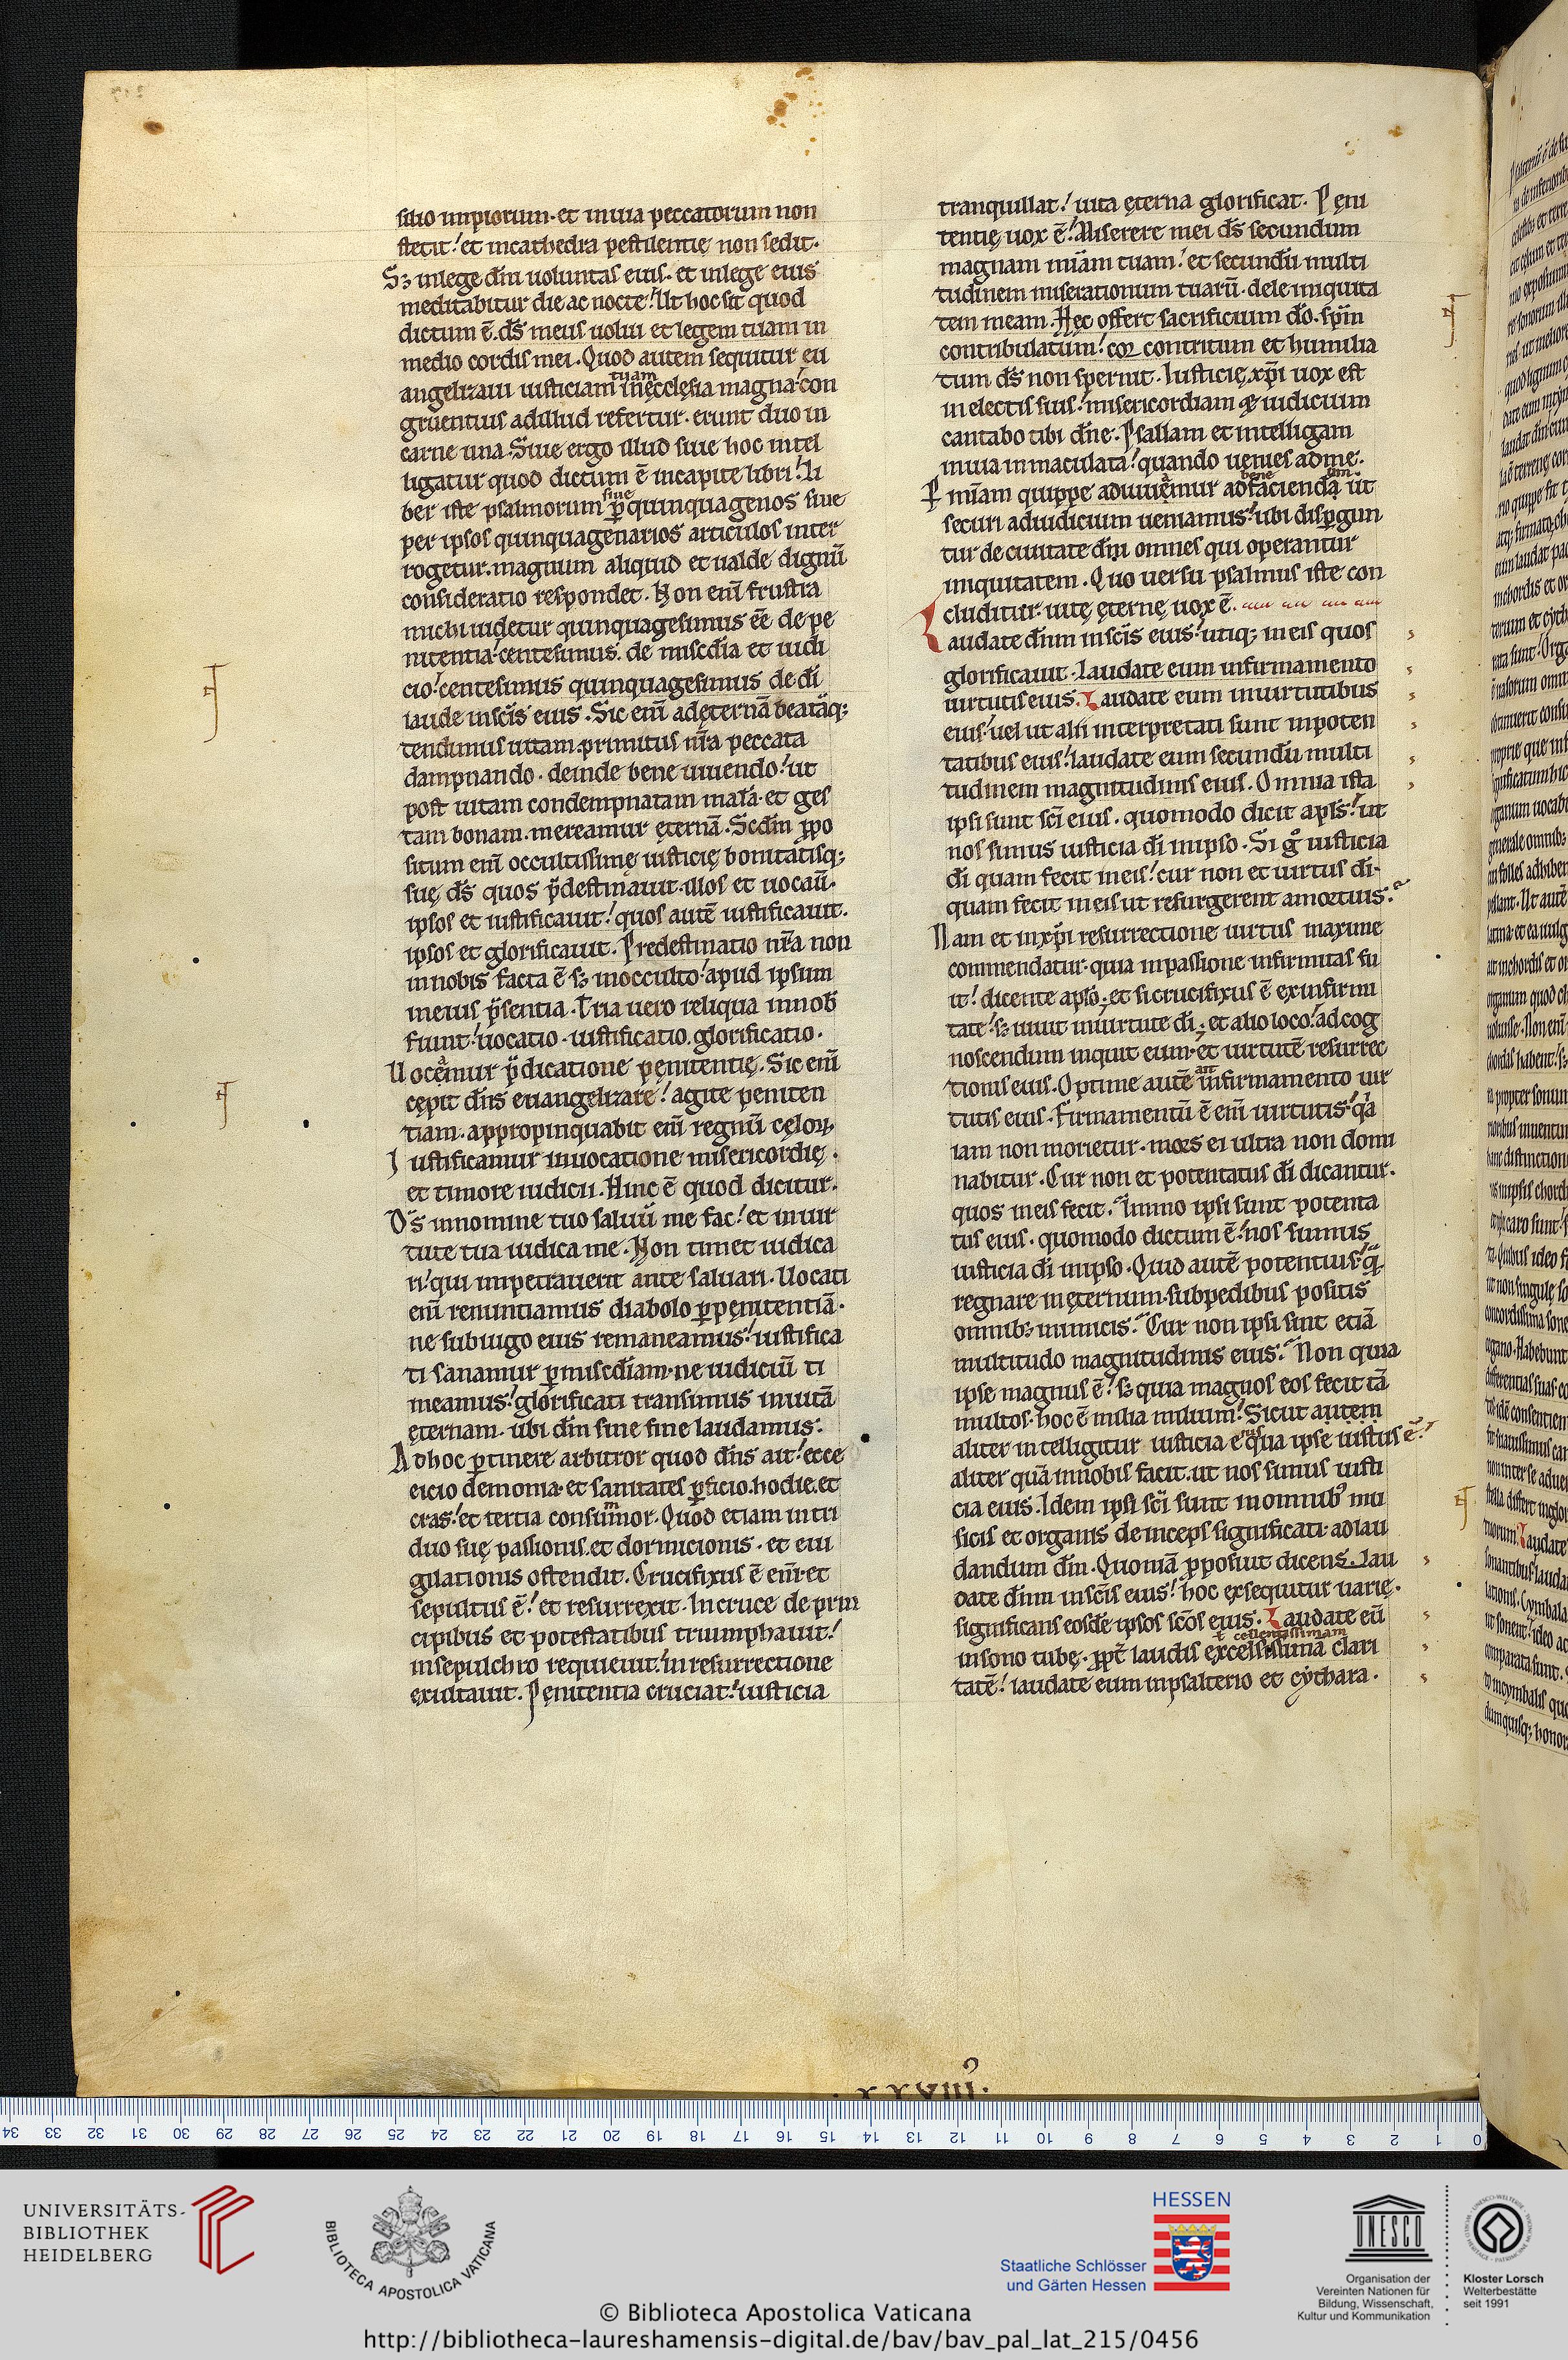 silio impiorum. et inuia peccatorum non
stetit! et incathedra pestilentię non sedit.
Sꝫ inlege dñi uoluntas eius. et inlege eius
meditabitur die ac nocte! Ut hoc sit quod
dictum ē. dš meus uolui et legem tuam in
medio cordis mei. Quod autem sequitur eu
angelizaui iusticiam tuam inęcclesia magna! con
gruentius adillud refertur. erunt duo in
carne una. Siue ergo illud siue hoc intel
ligatur quod dictum ē incapite libri! li
ber iste psalmorum siue ꝑ quinquagenos siue
per ipsos quinquagenarios articulos inter
rogetur. magnum aliquid et ualde dignū
consideratio respondet. Non enī frustra
michi uidetur quinquagesimus eē de pe
nitentia! centesimus. de misc̄dia et iudi
cio! centesimus quinquagesimus de dī
laude insc̄is eius. Sic enī adęternā beatāqꝫ
tendimus uitam. primitus nr̄a peccata
dampnando. deinde bene uiuendo! ut
post uitam condempnatam malā. et ges
tam bonam. mereamur ęternā. Scdm ꝓpo
situm enī occultissimę iusticię bonitatisqꝫ
suę, dš quos p̄destinauit. illos et uocau̅.
ipsos et iustificauit! quos autē iustificauit.
ipsos et glorificauit. Predestinatio nr̄a non
innobis facta ē sꝫ inocculto! apud ipsum
ineius p̄sentia. Tria uero reliqua innob̄
fiunt! uocatio. iustificatio. glorificatio.
Uocamur p̄dicatione pęnitentię. Sic enī
cępit dñs euangelizare! agite peniten
tiam. appropinquabit enī regnū cęloꝝ.
Iustificamur inuocatione misericordię.
et timore iudicii. Hinc ē quod dicitur.
Dš innomine tuo saluū me fac! et inuir
tute tua iudica me. Non timet iudica
ri! qui impetrauerit ante saluari. Uocati
enī renuntiamus diabolo ꝑ pęnitentiā.
ne subiugo eius remaneamus! iustifica
ti sanamur ꝑ misc̄diam. ne iudiciū ti
meamus! glorificati transimus inuitā
ęternam. ubi dm̄ sine fine laudamus.
Adhoc ꝑtinere arbitror quod dñs ait! ecce
eicio demonia. et sanitates ꝑficio. hodie. et
cras! et tertia consummor. Quod etiam intri
duo suę passionis. et dormicionis. et eui
gilationis ostendit. Crucifixus ē enī. et
sepultus ē! et resurrexit. Incruce de prin
cipibus et potestatibus triumphauit!
insepulchro requieuit. inresurrectione
exultauit. Penitentia cruciat! iusticia
tranquillat! uita ęterna glorificat. Peni
tentię uox ē! Miserere mei dš secundum
magnam mīam tuam! et secundū multi
tudinem miserationum tuarū. dele iniquita
tem meam. Hęc offert sacrificium dō. sp̄m
contribulatum! coꝛ contritum et humilia
tum dš non spernit. Iusticię xp̄i uox est
inelectis suis! misericordiam & iudicium
cantabo tibi dñe. Psallam et intelligam
inuia inmaculata! quando uenies adme.
P mīam quippe adiuuamur ad bene faciendam ut
securi adiudicium ueniamus! ubi disꝑgun
tur de ciuitate dn̄i omnes qui operantur
iniquitatem. Quo uersu psalmus iste con
cluditur. uitę ęternę uox ē.
Laudate dñm insc̄is eius! utiqꝫ ineis quos
glorificauit. Laudate eum infirmamento
uirtutis eius. Laudate eum inuirtutibus
eius! uel ut alii interpretati sunt inpoten
tatibus eius! laudate eum secundū multi
tudinem magnitudinis eius. Omnia ista
ipsi sunt sc̄i eius. quomodo dicit apl̄s! ut
nos simus iusticia dī inipso. Si g° iusticia
dī quam fecit ineis! cur non et uirtus dī.
quam fecit ineis ut resurgerent amoꝛtuis.
Nam et inxp̄i resurrectione uirtus maxime
commendatur. quia inpassione infirmitas fu
it! dicente aplo. et si crucifixus ē exinfirmi
tate! sꝫ uiuit inuirtute dī. et alio loco! ad cog
noscendum inquit eum. et uirtutē resurrec
tionis eius. Optime autē ait infirmamento uir
tutis eius. Firmamentū ē enī uirtutis! qa
iam non morietur. moꝛs ei ultra non domi
nabitur. Cur non et potentatus dī dicantur.
quos ineis fecit. Immo ipsi sunt potenta
tus eius. quomodo dictum ē! nos simus
iusticia dī inipso. Quid autē potentius! q̄
regnare inęternum. subpedibus positis
omnibꝫ inimicis. Cur non ipsi sint etiā
multitudo magnitudinis eius. Non quia
ipse magnus ē! sꝫ quia magnos eos fecit tā
multos. hoc ē milia milium! Sicut autem
aliter intelligitur iusticia eius qua ipse iustus ē!
aliter quā innobis facit. ut nos simus iusti
cia eius. Idem ipsi sc̄i sunt inomnibꝰ mu
sicis et organis deinceps significati. adlau
dandum dm̄. Quoniā ꝓposuit dicens. Lau
date dñm insc̄is eius! hoc exsequitur uarię.
significans eosdē ipsos sc̄os eius. Laudate eū
insono tubę. ꝓpt̄ laudis excelsissimā ł cellentissimam clari
tatē! laudate eum inpsalterio et cythara.
UNIVERSITÄTS-
BIBLIOTHEK
HEIDELBERG
BIBLIOTECA APOSTOLICA VATICANA
HESSEN
Staatliche Schlösser
und Gärten Hessen
UNESCO
Organisation der
Vereinten Nationen für
Bildung, Wissenschaft,
Kultur und Kommunikation
Kloster Lorsch
Welterbestätte
seit 1991
© Biblioteca Apostolica Vaticana
http://bibliotheca-laureshamensis-digital.de/bav/bav_pal_lat_215/0456